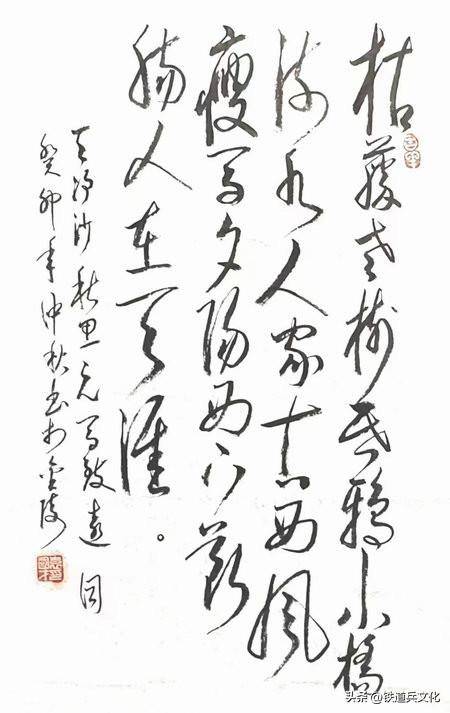 枯藤老树昏鸦小橋
流水人家古西风
瘦马夕陽西下断
肠人在天涯。
天净沙 秋思 元 马致远 词
癸卯年仲秋书于金陵
头条@铁道兵文化